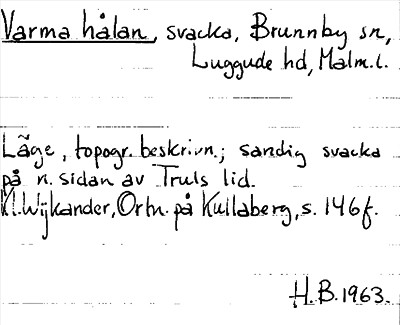 Varma hålan, svacka, Brunnby sn,
Luggude hd, Malm.l.
Läge, topogr. beskrivn.; sandig svacka
på n. sidan av Truls lid.
Kl. Wijkander, Ortn. på Kullaberg, s. 146f.
H.B. 1963.